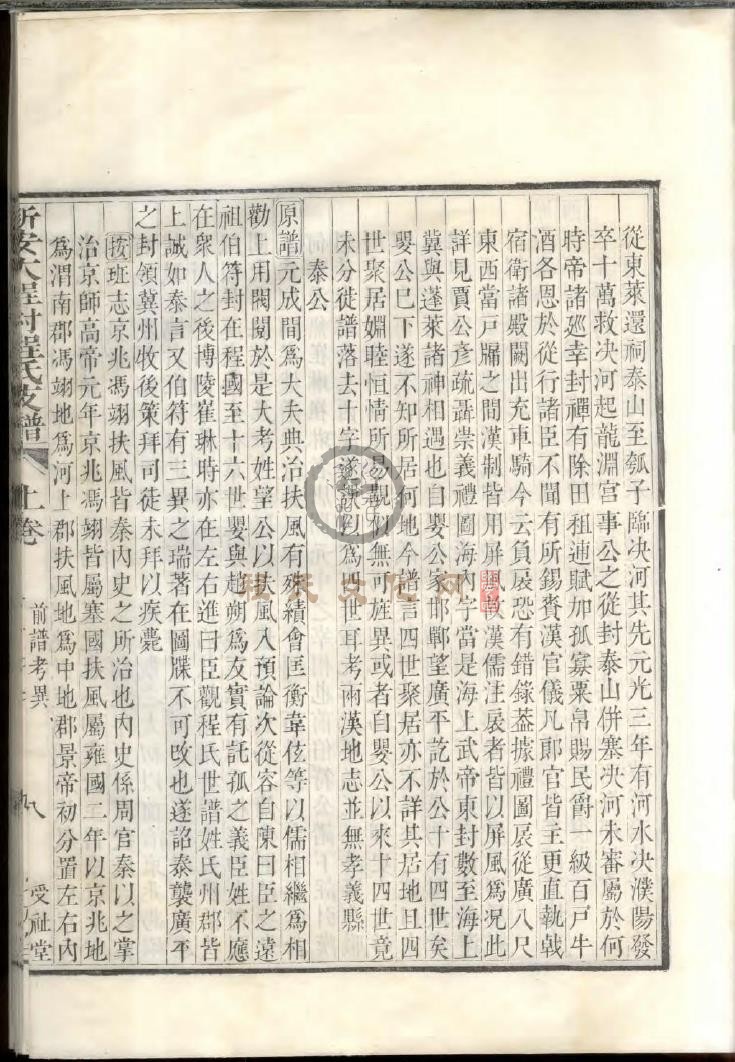 從東萊還祠泰山至瓠子臨决河其先元光三年有河水决濮陽發
卒十萬救决河起龍淵宫事公之從封泰山併塞决河未審屬於何
時帝諸廵幸封禪有除田租逋賦加孤寡粟帛賜民爵一級百戸牛
酒各恩於從行諸臣不聞有所錫賚漢官儀凡郎官皆主更直執戟
宿衛諸殿闕出充車騎今云負扆恐有錯錄葢據禮圖扆從廣八尺
東西當戸牖之間漢制皆用屏風故漢儒注扆者皆以屏風爲况此
詳見賈公彥疏聶崇義禮圖海内字當是海上武帝東封數至海上
冀與蓬萊諸神相遇也自嬰公家邯鄲望廣平訖於公十有四世矣
嬰公巳下遂不知所居何地今譜言四世聚居亦不詳其居地且四
世聚居婣睦恒情所易覩初無可旌異或者自嬰公以來十四世竟
未分徙譜落去十字遂訛以爲四世耳考兩漢地志並無孝義縣
泰公
原譜元成間爲大夫典治扶風有殊績會匡衡韋伭等以儒相繼爲相
勸上用閥閱於是大考姓望公以扶風入預論次從容自陳曰臣之遠
祖伯符封在程國至十六世嬰與趙朔爲友實有託孤之義臣姓不應
在衆人之後博陵崔琳時亦在左右進曰臣觀程氏世譜姓氏州郡皆
上誠如泰言又伯符有三異之瑞著在圖牒不可攺也遂詔泰襲廣平
之封領冀州牧後策拜司徒未拜以疾薨
按班志京兆馮翊扶風皆秦内史之所治也内史係周官秦以之掌
治京師高帝元年京兆馮翊皆屬塞國扶風屬雍國二年以京兆地
爲渭南郡馮翊地爲河上郡扶風地爲中地郡景帝初分置左右内
新安大程村程氏支譜 上卷 前譜考異 受祉堂